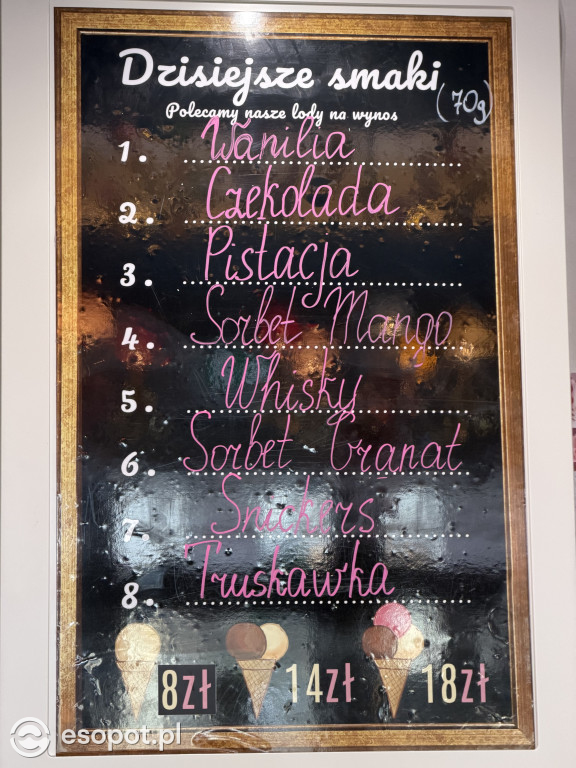 Dzisiejsze smaki
(70g)
Polecamy nasze lody na wynos
1. Wanilia
2. Czekolada
3. Pistacja
4. Sorbet Mango
5. Whisky
6. Sorbet Granat
7. Snickers
8. Truskawka
8zł 14zł 18zł
esopot.pl